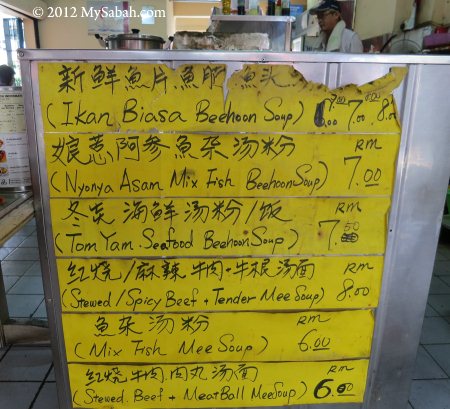 © 2012 MySabah.com
新鲜魚片魚肥 魚头
(Ikan Biasa Beehoon Soup) 7.00 8.00
娘惹阿参魚杂汤粉 RM
(Nyonya Asam Mix Fish Beehoon Soup) 7.00
冬炎海鲜汤粉/饭 RM
(Tom Yam Seafood Beehoon Soup) 7.50
红烧/麻辣牛肉+牛根汤面 RM
(Stewed/Spicy Beef + Tender Mee Soup) 8.00
魚杂汤粉 RM
(Mix Fish Mee Soup) 6.00
红烧牛肉.肉丸汤面 RM
(Stewed Beef + MeatBall Mee Soup) 6.00